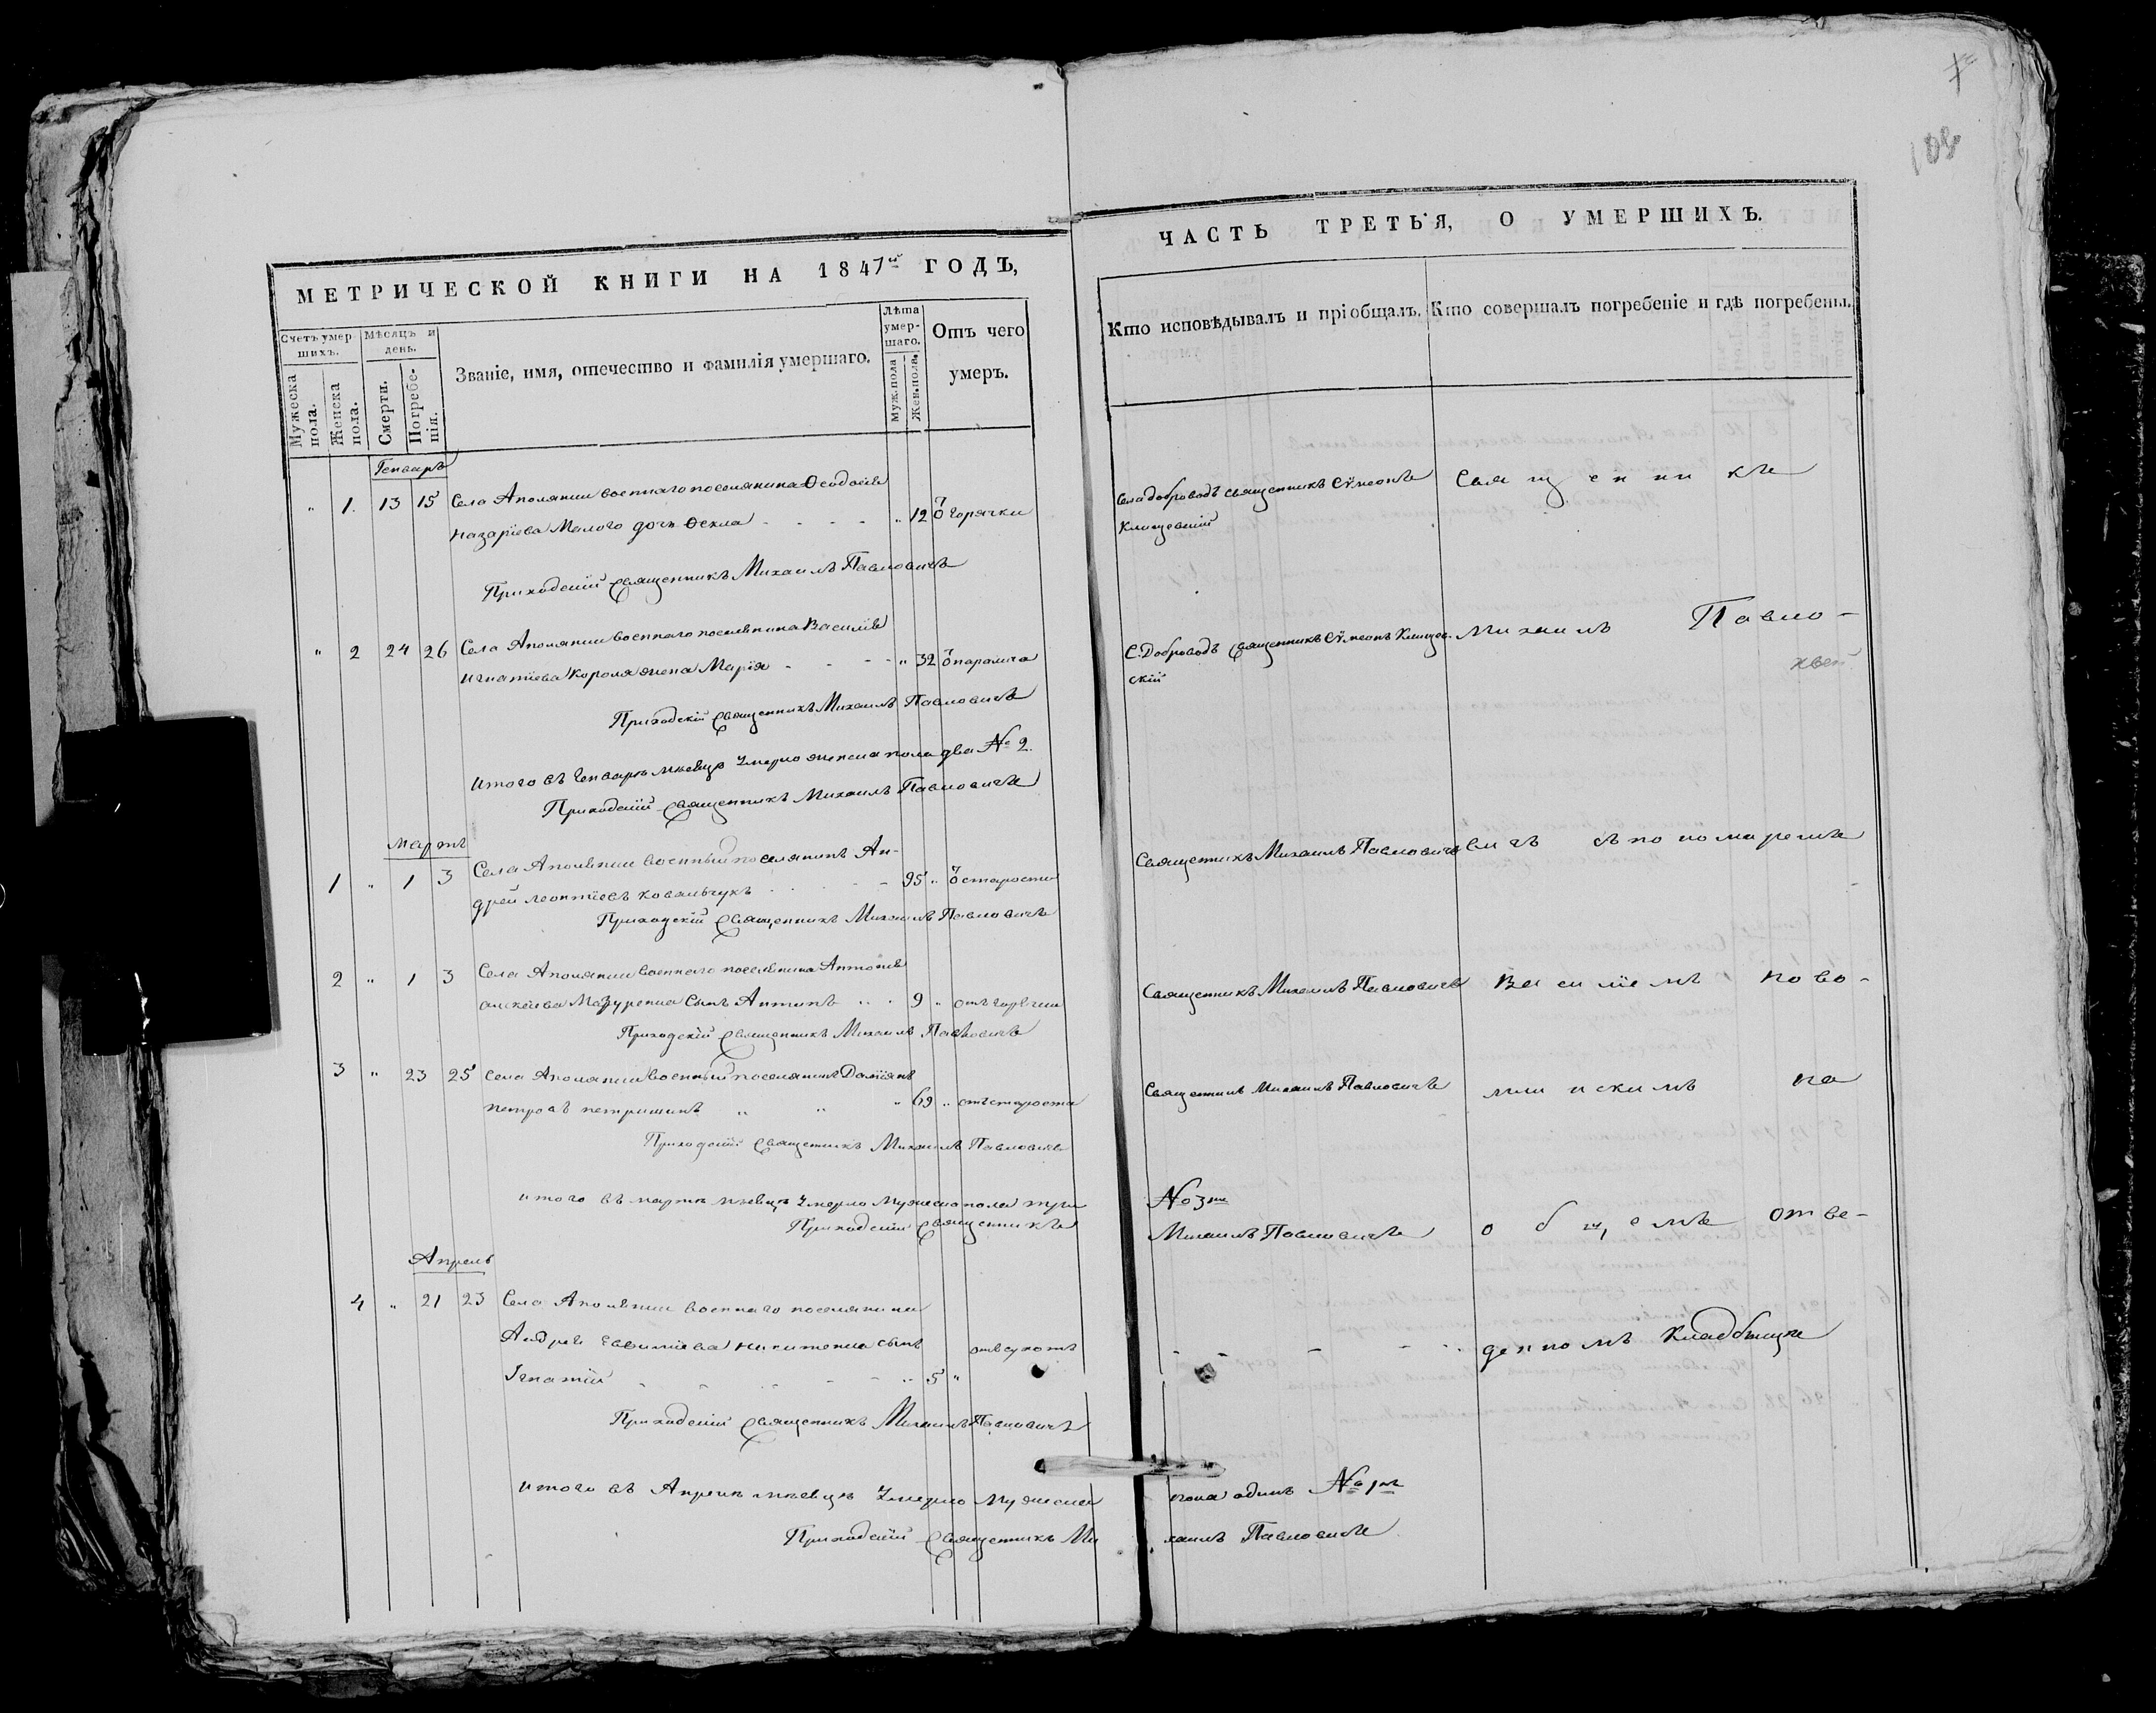 108
МЕТРИЧЕСКОЙ КНИГИ НА 1847й ГОДЪ,
Счетъ умершихъ.
Мужеска пола.
Женска пола.
Мѣсяцъ и день.
Смерти.
Погребенія.
Званіе, имя, отечество и фамилія умершаго.
Лѣта умершаго.
Муж. пола
Жен. пола.
Отъ чего умеръ.
Генварь
" 1. 13 15 Села Аполянки военнаго поселянина Ѳеодосія
Назаріева Малого дочь Ѳекла - - - - " 12 Ѿ горячки
Приходскій Священникъ Михаилъ Павловичъ
" 2 24 26 Села Аполянки военнаго поселянина Василія
Игнатіева Короля жена Марія - - - - " 32 Ѿ паралича
Приходскій Священникъ Михаилъ Павловичъ
Итого въ Генварѣ мѣсяцѣ умерло женска пола два № 2.
Приходскій Священникъ Михаилъ Павловичъ
Мартъ
1 " 1 3 Села Аполянки военный поселянинъ Ан-
дрей Леонтіевъ Ковальчукъ - - - - 95 " Ѿ старости
Приходскій Священникъ Михаилъ Павловичъ
2 " 1 3 Села Аполянки военнаго поселянина Антонія
Алексѣева Мазуренка сынъ Антипъ " " 9 " отъ горячки
Приходскій Священникъ Михаилъ Павловичъ
3 " 23 25 Села Аполянки военный поселянинъ Даміянъ
Петровъ Петришинъ " " " 69 " отъ старости
Приходскій Священникъ Михаилъ Павловичъ
Итого въ Мартѣ мѣсяцѣ умерло мужеска пола три
Приходскій Священникъ
Апрель
4 " 21 23 Села Аполянки военнаго поселянина
Андрея Евѳиміева Никитенка сынъ отъ сухотъ
Игнатій - - - - - " 5 "
Приходскій Священникъ Михаилъ Павловичъ
Итого въ Апрелѣ мѣсяцѣ умерло мужеска
Приходскій Священникъ Ми
ЧАСТЬ ТРЕТЬЯ, О УМЕРШИХЪ.
Кто исповѣдывалъ и пріобщалъ.
Кто совершалъ погребеніе и гдѣ погребены.
Села Доброводъ священникъ Сѵмеонъ Священникъ
Клищевскій
С. Доброводъ Священникъ Сѵмеонъ Клищев- Михаилъ Павло-
скій
Священникъ Михаилъ Павловичъ вичъ съ пономаремъ
Священникъ Михаилъ Павловичъ Василіемъ Ново-
Священникъ Михаилъ Павловичъ на
№ 3й
Михаилъ Павловичъ общемъ отве-
- - - - - денномъ кладбищѣ
пола одинъ № 1й
хаилъ Павловичъ